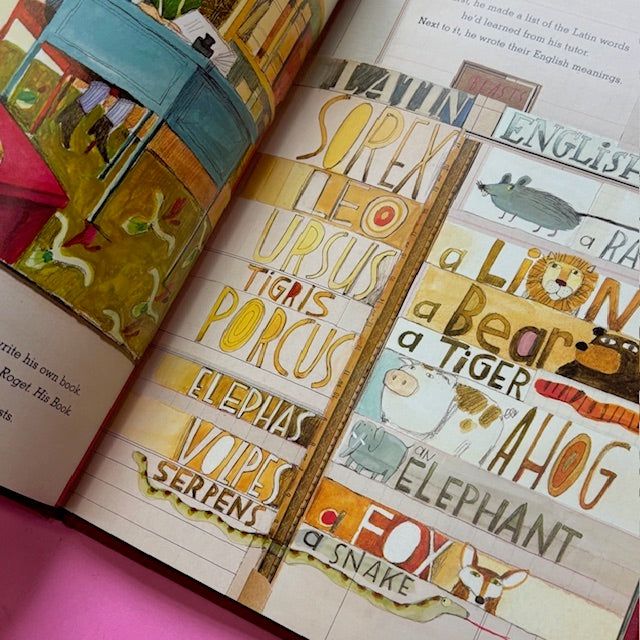 write his own book.
Roget. His Book.
he made a list of the Latin words
he'd learned from his tutor.
Next to it, he wrote their English meanings.
BEASTS
LATIN
SOREX
LEO
URSUS
TIGRIS
PORCUS
ELEPHAS
VOLPES
SERPENS
ENGLISH
a RA
a LION
a Bear
a TIGER
A HOG
an ELEPHANT
a FOX
a SNAKE